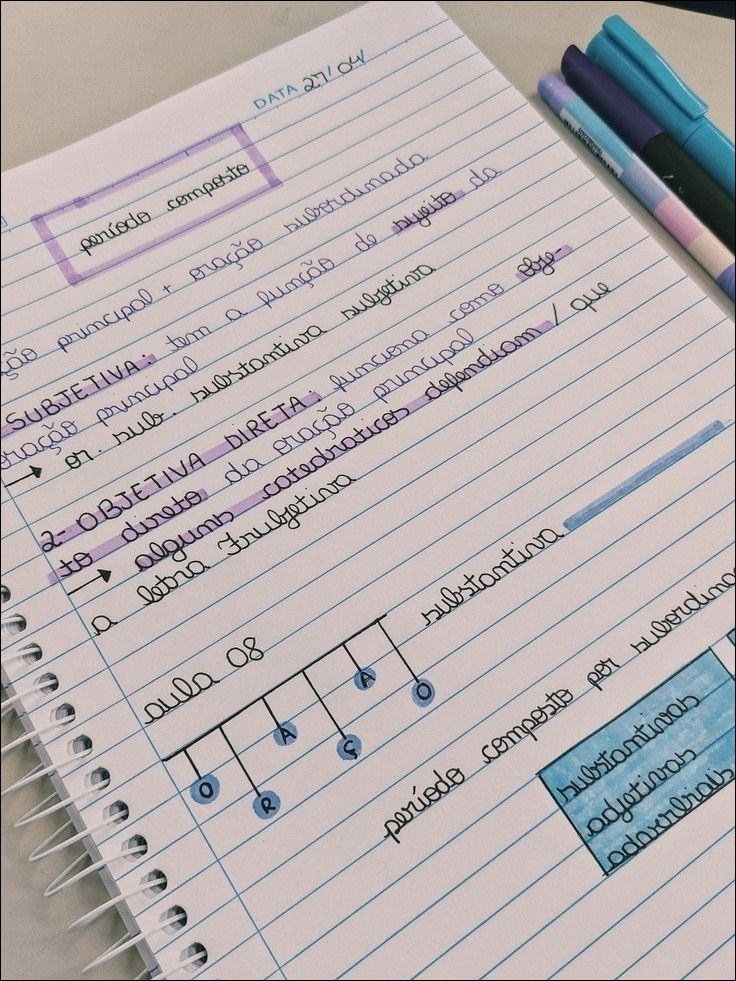 DATA 27/04/
período composto
ção principal + oração subordinada
SUBJETIVA: tem a função de sujeito da
oração principal
→ or. sub. substantiva subjetiva
2- OBJETIVA DIRETA: funciona como obje-
to direto da oração principal
→ alguns catedraticos defendiam / que
a letra
aula 08
ORAÇÃO substantiva
período composto por subordina
substantivas
adjetivas
adverbiais